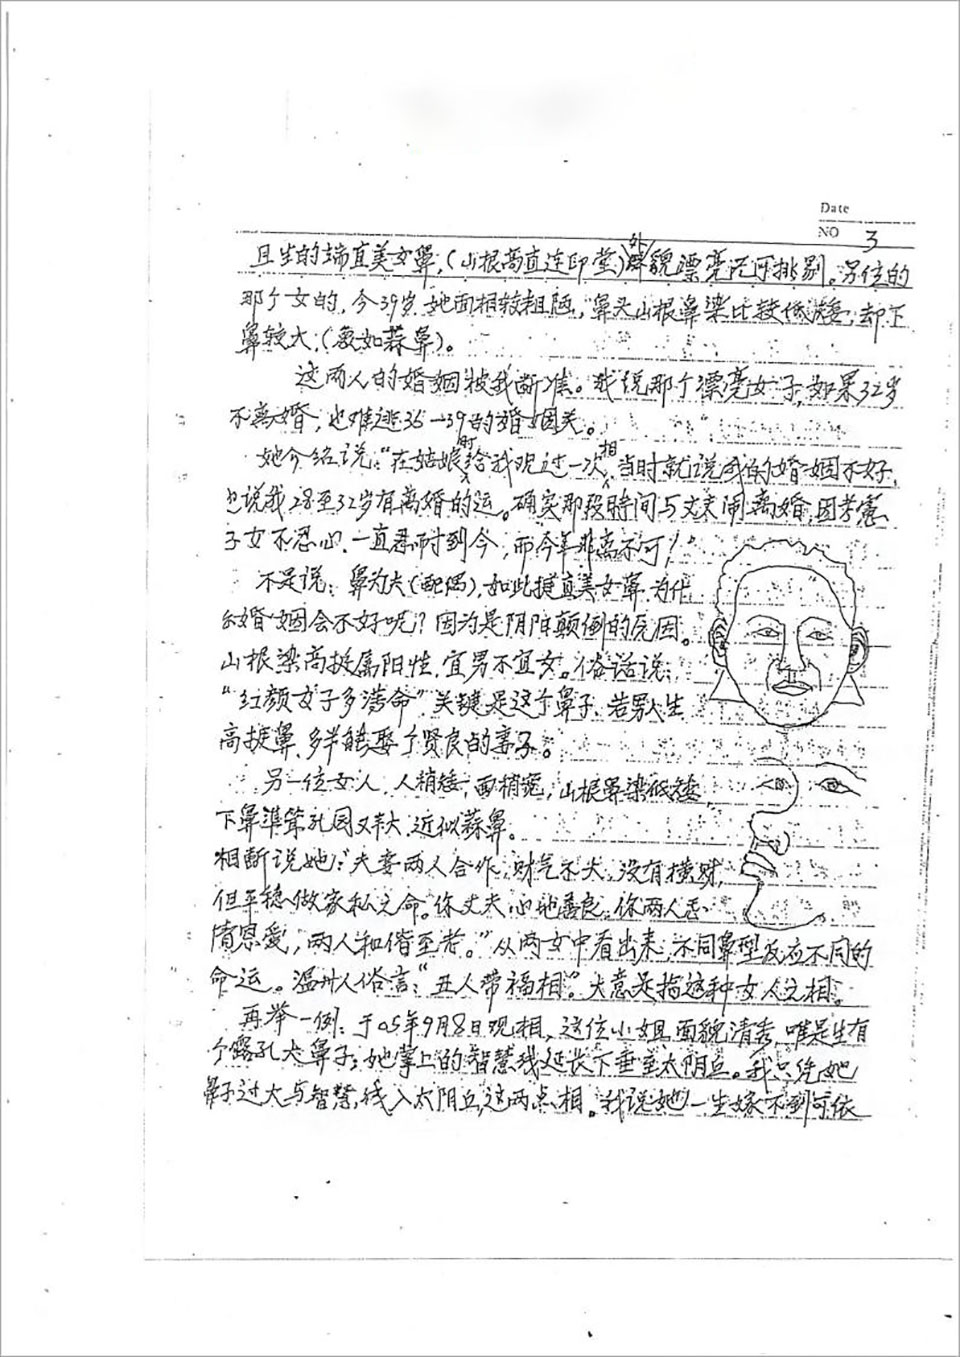 Date
NO 3
且生的端直美女鼻,(山根高直连印堂)外貌漂亮无可挑剔。另位的
那个女的,今39岁.她面相较粗陋,鼻头山根鼻梁比较低矮;却下
鼻较大;(感如蒜鼻)。
这两人的婚姻被我断准。我说那个漂亮女子,如果32岁
不离婚,也难逃35→39的婚姻关。
她介绍说:“在姑娘时给我观过一次相,当时就说我的婚姻不好,
也说我28至32岁有离婚的运。确实那段时间与丈夫闹离婚,因考虑
子女不忍心.一直忍耐到今,而今年非离不可!
不是说:鼻为夫(配偶),如此挺直美女鼻,为什
么婚姻会不好呢?因为是阴阳颠倒的原因。
山根梁高挺属阳性,宜男不宜女。俗话说:
“红颜女子多薄命”关键是这个鼻子.若男人生
高挺鼻.多半能娶个贤良的妻子。
另一位女人.人稍矮;面稍宽,山根鼻梁低矮,
下鼻準第孔园又丰大.近似蒜鼻。
相断说她:“夫妻两人合作,财气不大,没有横财,
但平稳做家私之命。你丈夫心地善良,你两人
恩爱,两人和偕至老。”从两女中看出来,不同鼻型反应不同的
命运。温州人俗言:“丑人带福相”。大意是指这种女人之相。
再举一例:于05年9月8日观相,这位小姐面貌清秀,唯是生有
个露孔大鼻子;她掌上的智慧线延长下垂至太阴丘。我只凭她
鼻子过大与智慧线入太阴丘,这两点相。我说她一生嫁不到可依